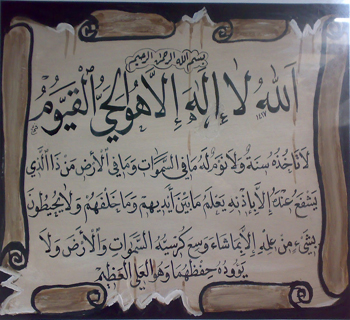 بسم الله الرحمن الرحيم
ٱللَّهُ لَا إِلَٰهَ إِلَّا هُوَ الْحَيُّ الْقَيُّومُ
لَا تَأْخُذُهُ سِنَةٌ وَلَا نَوْمٌ لَهُ مَا فِي السَّمَٰوَاتِ وَمَا فِي الْأَرْضِ مَنْ ذَا الَّذِي
يَشْفَعُ عِنْدَهُ إِلَّا بِإِذْنِهِ يَعْلَمُ مَا بَيْنَ أَيْدِيهِمْ وَمَا خَلْفَهُمْ وَلَا يُحِيطُونَ
بِشَيْءٍ مِنْ عِلْمِهِ إِلَّا بِمَا شَاءَ وَسِعَ كُرْسِيُّهُ السَّمَٰوَاتِ وَالْأَرْضَ وَلَا
يَؤُودُهُ حِفْظُهُمَا وَهُوَ الْعَلِيُّ الْعَظِيمُ